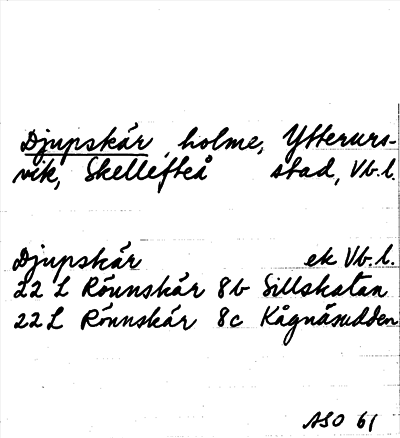 Djupskär, holme, Ytterurs-
vik, Skellefteå stad, Vb.l.
Djupskär ek Vb.l.
22 L Rönnskär 8b Sillskatan
22 L Rönnskär 8c Kågnäsudden
ASO 61